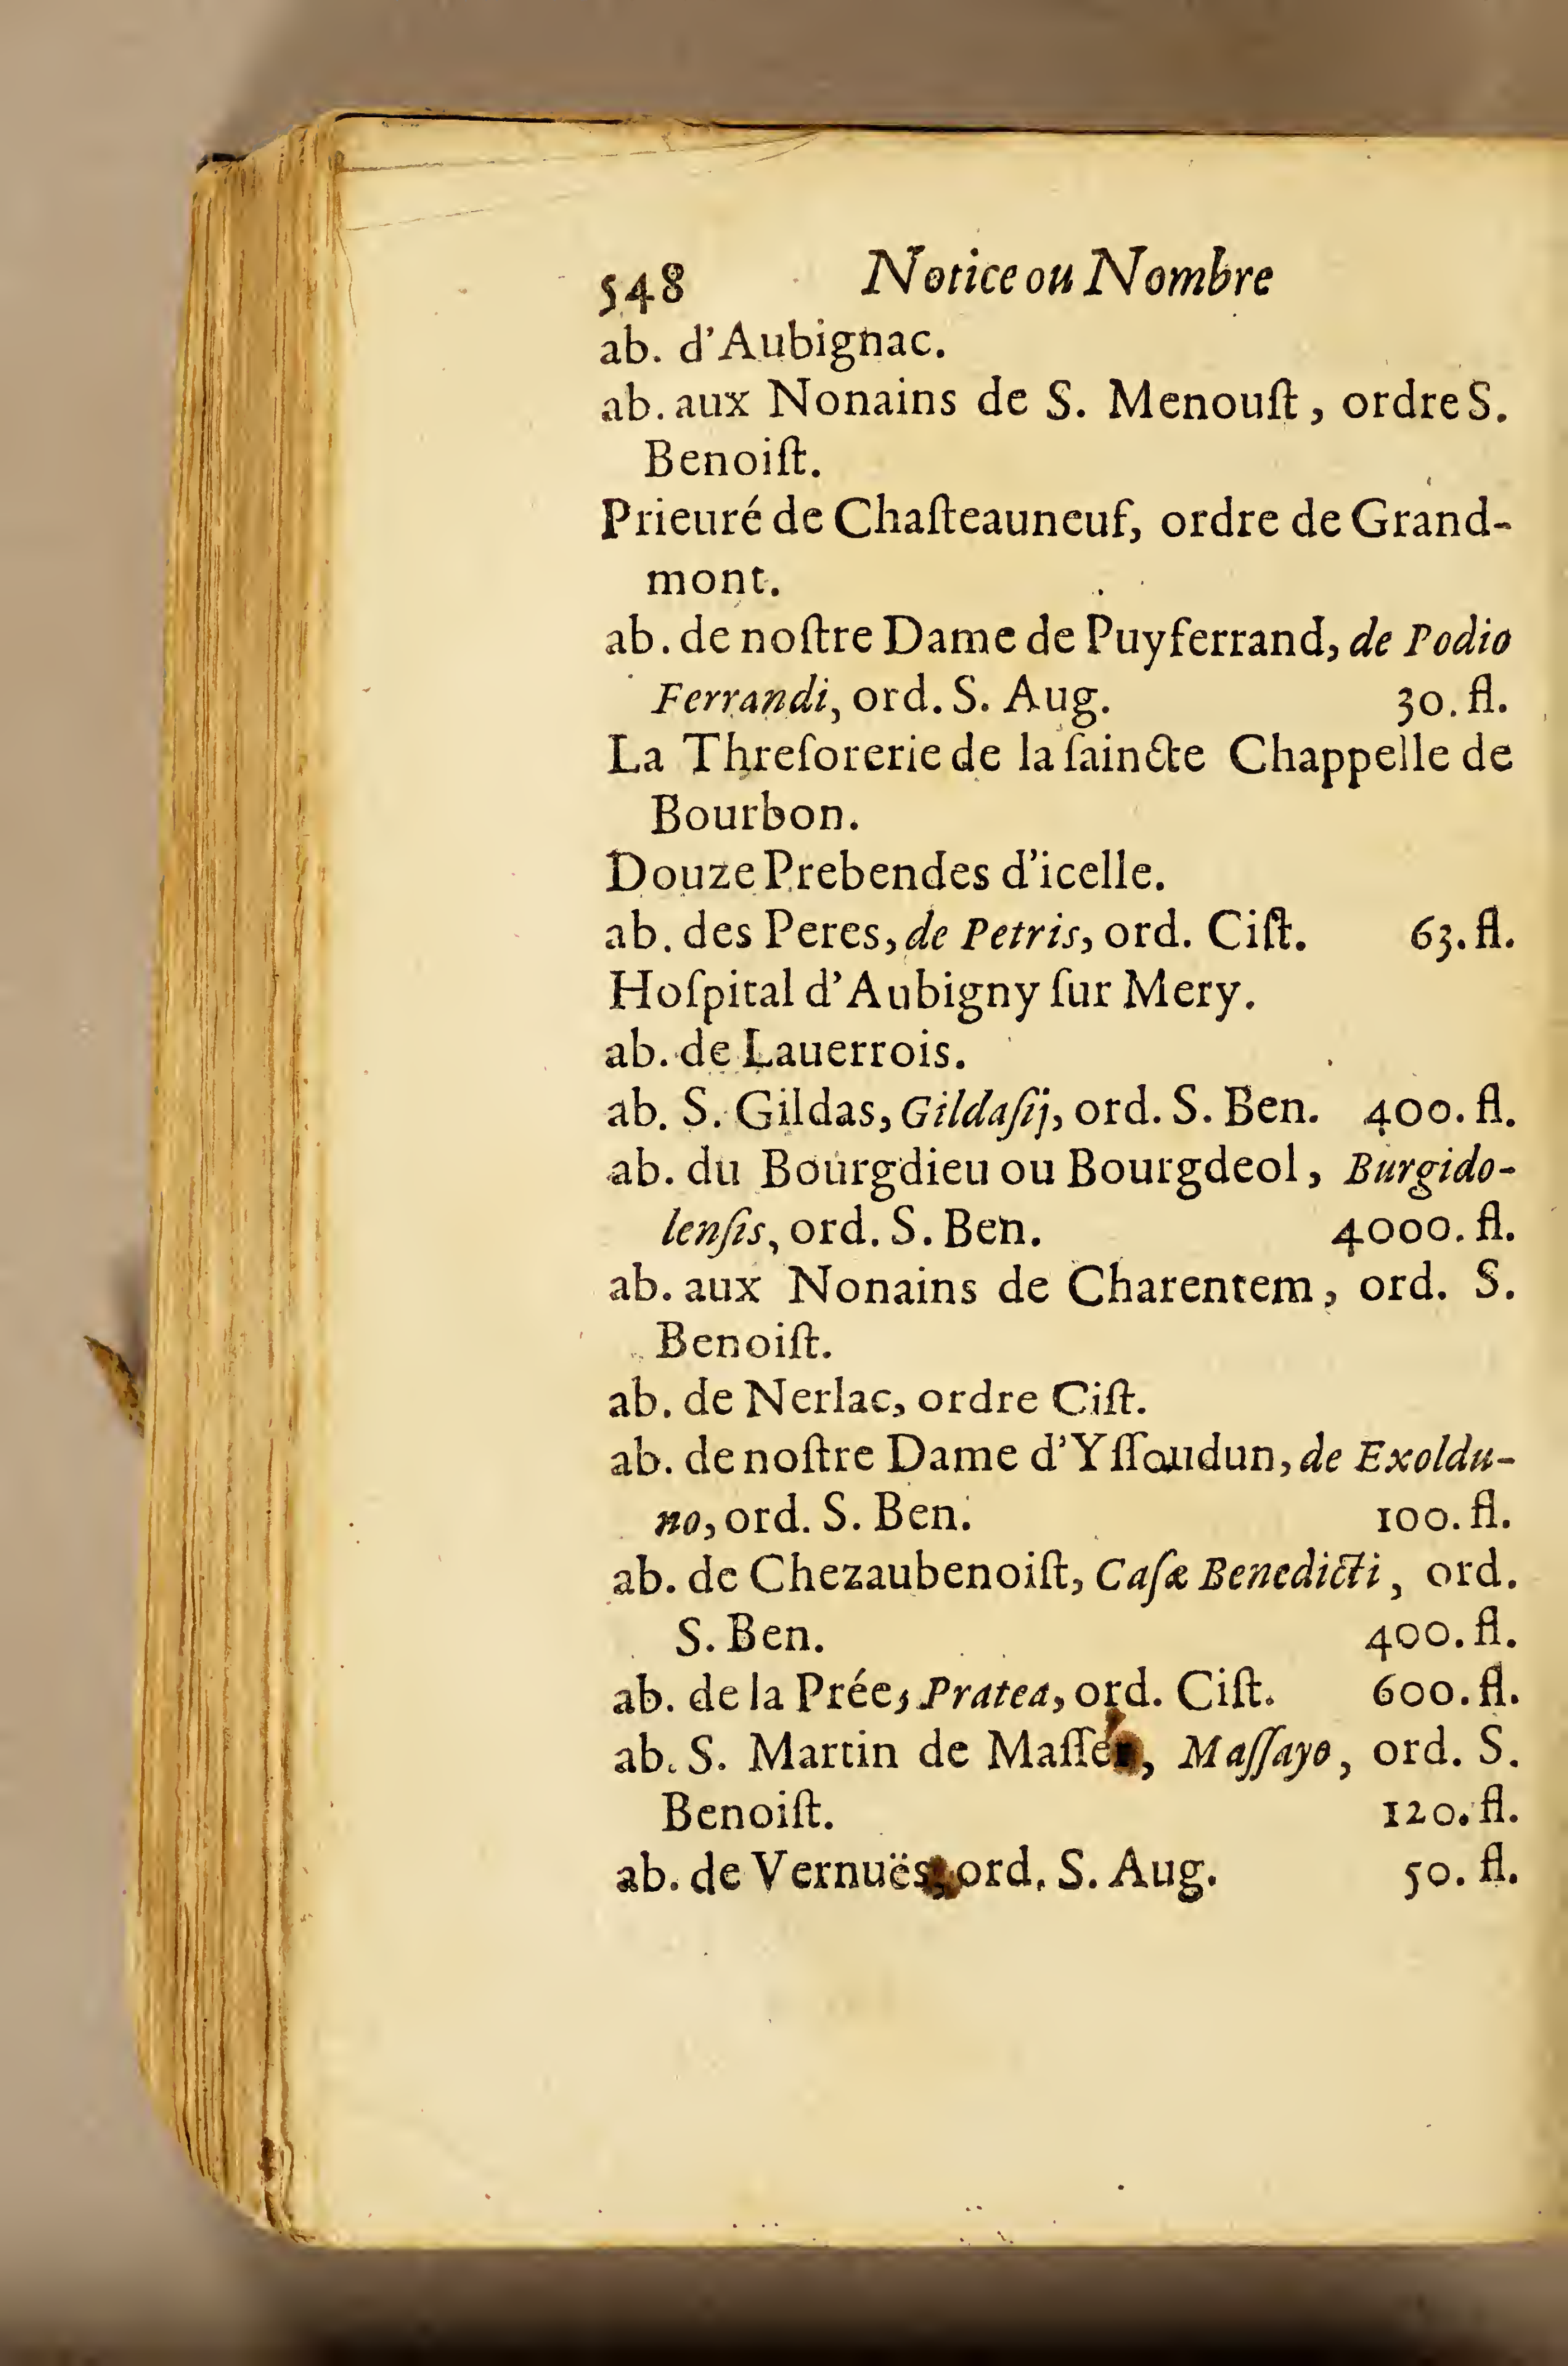 548 Notice ou Nombre
ab. d'Aubignac.
ab. aux Nonains de S. Menouſt, ordre S.
Benoiſt.
Prieuré de Chaſteauneuf, ordre de Grand-
mont.
ab. de noſtre Dame de Puyferrand, de Podio
Ferrandi, ord. S. Aug. 30. fl.
La Threſorerie de la ſaincte Chappelle de
Bourbon.
Douze Prebendes d'icelle.
ab. des Peres, de Petris, ord. Ciſt. 63. fl.
Hoſpital d'Aubigny ſur Mery.
ab. de Lauerrois.
ab. S. Gildas, Gildaſij, ord. S. Ben. 400. fl.
ab. du Bourgdieu ou Bourgdeol, Burgido-
lenſis, ord. S. Ben. 4000. fl.
ab. aux Nonains de Charentem, ord. S.
Benoiſt.
ab. de Nerlac, ordre Ciſt.
ab. de noſtre Dame d'Yſſoudun, de Exoldu-
no, ord. S. Ben. 100. fl.
ab. de Chezaubenoiſt, Caſæ Benedicti, ord.
S. Ben. 400. fl.
ab. de la Prée, Pratea, ord. Ciſt. 600. fl.
ab. S. Martin de Maſſayo, ord. S.
Benoiſt. 120. fl.
ab. de Vernuës, ord. S. Aug. 50. fl.